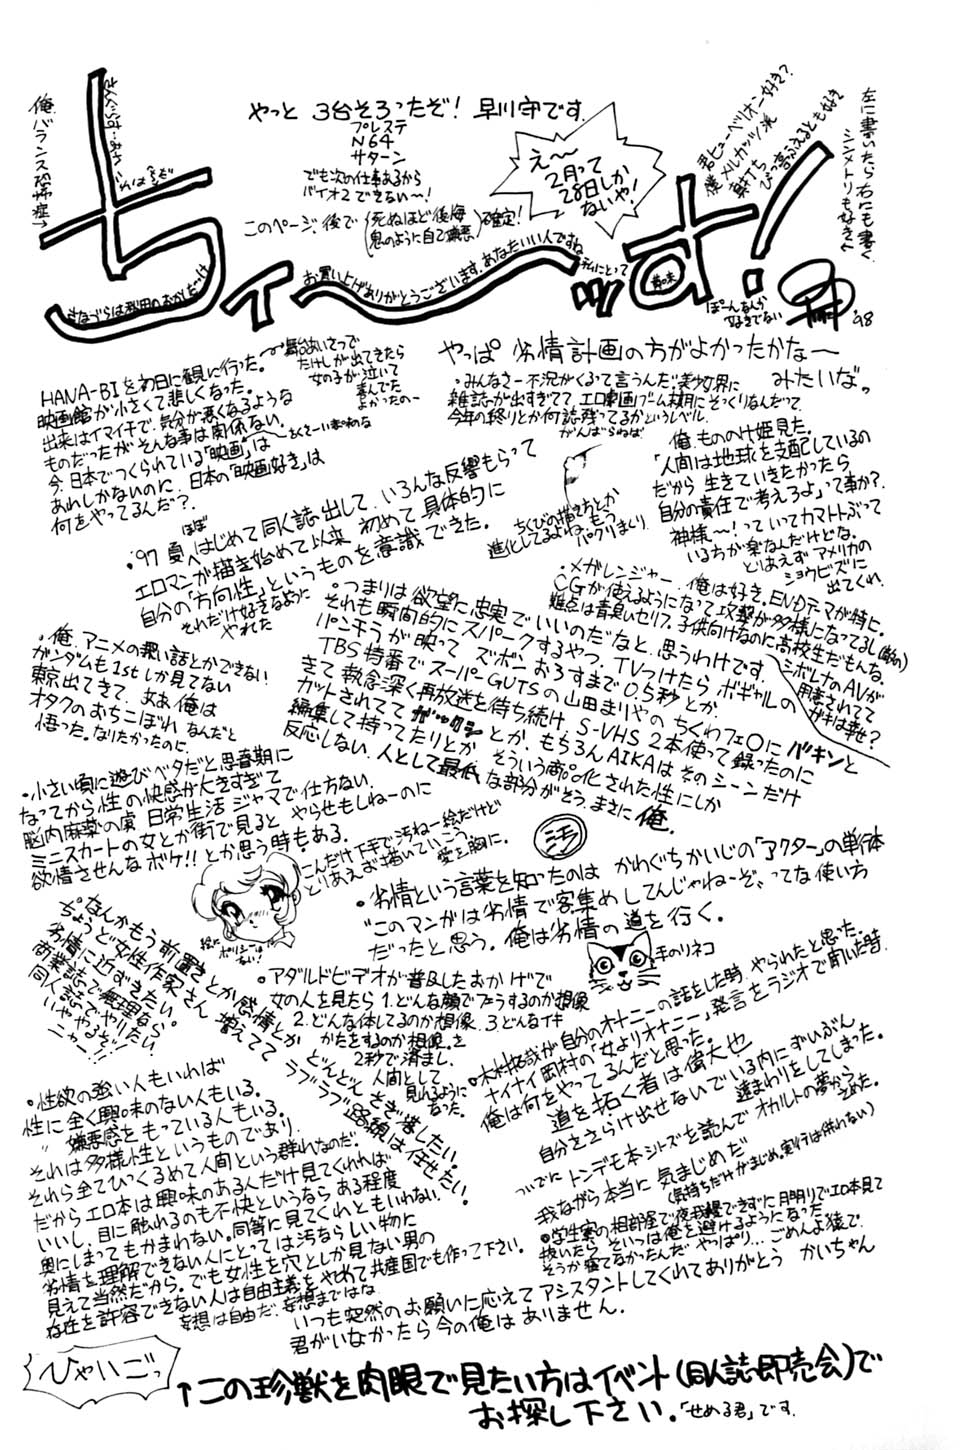 やっと 3台そろったぞ! 早川守です.
プレステ
N64
サターン
でも次の仕事あるから
バイオ2できない〜!
このページ、後で(死ぬほど後悔 鬼のように自己嫌悪)確定!
え〜
2月って
28日しか
ないや!
君ヒューベリオン好き?
僕メルカッツ派
左に書いたら右にも書く
シンメトリも好き
ちィ〜ッす!
お買い上げありがとうございます。あなたいい人ですね
私にとって
ぽーんなんか
好きでない
'98
HANA-BIを初日に観に行った。
映画館が小さくて悲しくなった。
出来はイマイチで、気分が悪くなるような
ものだったがそんな事は関係ない。
今、日本でつくられている「映画」は
あれしかないのに、日本の「映画好き」は
何をやってるんだ?
舞台あいさつで
たけしが出てきたら
女の子が泣いて
喜んでた
よかったの〜
やっぱ 劣情計画の方がよかったかな〜
みたいなっ
・みんなさー不況がくるって言うんだ美少女界に
雑誌が出すぎてて、エロ劇画ブーム末期にそっくりなんだって
今年の終りとか何誌残ってるかというレベル.
がんばらねば
俺、もののけ姫見た。
「人間は地球を支配しているの
だから 生きていきたかったら
自分の責任で考えろよ」って事か?
神様〜!っていってカマトトぶって
いる方が楽なんだけどな。
とりあえず アメリカの
ショウビズに
出てくれ
ちくびの描き方とか
進化してるよね。もう
パクリまくり.
'97 夏ほぼはじめて同人誌出して、いろんな反響もらって
エロマンガ描き始めて以来 初めて具体的に
自分の「方向性」というものを意識できた。
それだけ好きなように
やれた
・メガレンジャー. 俺は好き、ENDテーマが特に。
CGが使えるようになって攻撃が多様になってるし
難点は青臭いセリフ。子供向けなのに高校生だもんな。
シボレナのAVが
用意されてて
がけは幸せ?
・つまりは欲望に忠実でいいのだなと、思うわけです.
それも瞬間的にスパークするやつ。TVつけたら、ボギャルの
パンチラが映って ズボンおろすまで0.5秒とか.
TBS特番でスーパーGUTSの山田まりやのちくわフェ〇にバキンと
きて執念深く再放送を待ち続け、S-VHS 2本使って録ったのに
カットされててガックシとか、もちろんAIKAはそのシーンだけ
編集して持ってたりとか そういう商品化された性にしか
反応しない、人として最低な部分がそう、まさに俺.
・俺、アニメの濃い話とかできない
ガンダムも1stしか見てない
東京出てきて、ああ俺は
オタクのおちこぼれ なんだと
悟った。なりたかったのに.
・小さい頃に遊びベタだと思春期に
なってから性の快感が大きすぎて
脳内麻薬の虜 日常生活ジャマで仕方ない.
ミニスカートの女とか街で見ると やらせもしねーのに
欲情させんなボケ!!とか思う時もある.
こんだけ下手で汚ねー絵だけど
とりあえず描いていこう
愛を胸に.
絵にポリシーはない!
・劣情という言葉を知ったのは かわぐちかいじの「アクター」の単行本
"このマンガは劣情で客集めしてんじゃねーぞ、ってな使い方
だったと思う。俺は劣情の道を行く.
千のリネコ
なんかもう前置きとか感情とか
ちょうど女性作家さん増えてて
劣情に近ずきたい。
商業誌で無理なら
同人誌でやりたい
いややるぞ!
ニャー!!
どんどんそぎ落したい.
ラブラブ路線は任せたい.
・アダルトビデオが普及したおかげで
女の人を見たら 1.どんな顔でフ〇ラするのか想像
2.どんな体してるのか想像. 3どんなイキ
かたをするのか想像、を
2秒で済まし.
人間として
見れるように
なった.
・木村拓哉が自分のオナニーの話をした時、やられたと思った.
ナイナイ岡村の「女よりオナニー」発言をラジオで聞いた時.
俺は何をやってるんだと思った.
道を拓く者は偉大也
自分をさらけ出せないでいる内にずいぶん
遠まわりをしてしまった.
ついでに トンデモ本シリーズを読んで オカルトの夢から
さめた.
我ながら本当に 気まじめだ
(気持ちだけがまじめ。実行は伴わない)
・性欲の強い人もいれば
性に全く興味のない人もいる.
〃 嫌悪感をもっている人もいる.
それは多様性というものであり.
それら全てひっくるめて人間という群れなのだ.
だからエロ本は興味のある人だけ見てくれれば
いいし、目に触れるのも不快というなら ある程度
奥にしまってもかまわない。同等に見てくれともいわれない.
劣情を理解できない人にとっては汚ならしい物に
見えて当然だから。でも女性を穴としか見ない男の
存在を許容できない人は自由主義をやめて共産国でも作って下さい.
妄想は自由だ.妄想まではな.
・学生寮の相部屋で夜我慢できずに月明りでエロ本見て
抜いたら そいつは俺を避けるようになった
そうか寝てなかったんだ やっぱり…ごめんよ後で.
いつも突然のお願いに応えて アシスタントしてくれてありがとう かいちゃん
君がいなかったら今の俺はありません.
ひゃいごっ
↑この珍獣を肉眼で見たい方はイベント(同人誌即売会)で
お探し下さい.「せめる君」です.